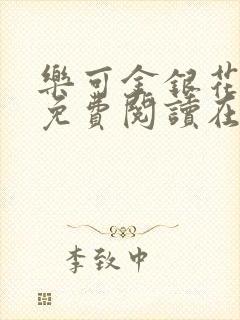 樂可金銀花
免費閱讀在
李致中